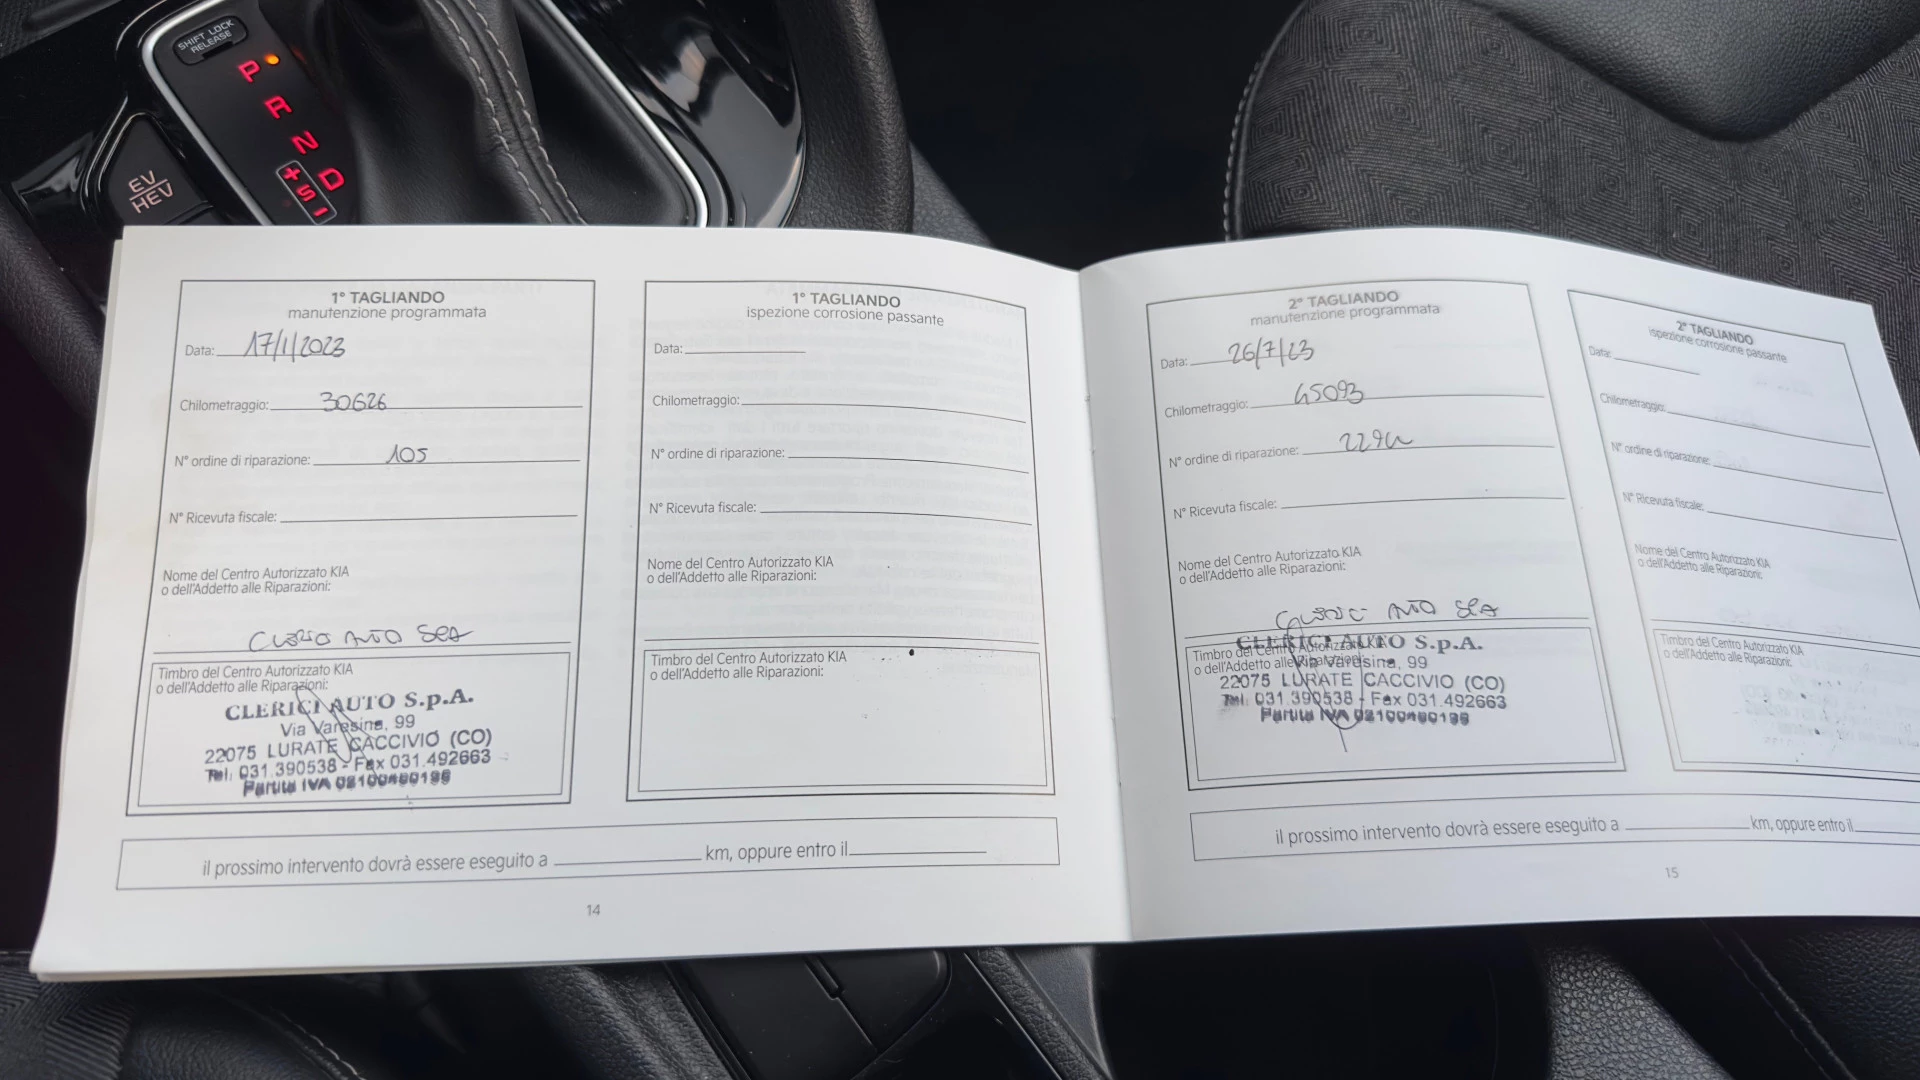 SHIFT LOCK
RELEASE
P
R
N
D
+
S
-
EV
HEV
1° TAGLIANDO
manutenzione programmata
Data: 17/1/2023
Chilometraggio: 30626
N° ordine di riparazione: 105
N° Ricevuta fiscale:
Nome del Centro Autorizzato KIA
o dell'Addetto alle Riparazioni:
Timbro del Centro Autorizzato KIA
o dell'Addetto alle Riparazioni:
CLERICI AUTO S.p.A.
Via Varesina, 99
22075 LURATE CACCIVIO (CO)
Tel. 031.390538 - Fax 031.492663
Partita IVA
1° TAGLIANDO
ispezione corrosione passante
Data:
Chilometraggio:
N° ordine di riparazione:
N° Ricevuta fiscale:
Nome del Centro Autorizzato KIA
o dell'Addetto alle Riparazioni:
Timbro del Centro Autorizzato KIA
o dell'Addetto alle Riparazioni:
il prossimo intervento dovrà essere eseguito a km, oppure entro il
14
2° TAGLIANDO
manutenzione programmata
Data: 26/7/23
Chilometraggio: 45093
N° ordine di riparazione:
N° Ricevuta fiscale:
Nome del Centro Autorizzato KIA
o dell'Addetto alle Riparazioni:
Timbro del Centro Autorizzato KIA
o dell'Addetto alle Riparazioni:
CLERICI AUTO S.p.A.
Via Varesina, 99
22075 LURATE CACCIVIO (CO)
Tel. 031.390538 - Fax 031.492663
Partita IVA
2° TAGLIANDO
ispezione corrosione passante
Data:
Chilometraggio:
N° ordine di riparazione:
N° Ricevuta fiscale:
Nome del Centro Autorizzato KIA
o dell'Addetto alle Riparazioni:
Timbro del Centro Autorizzato KIA
o dell'Addetto alle Riparazioni:
il prossimo intervento dovrà essere eseguito a km, oppure entro il
15